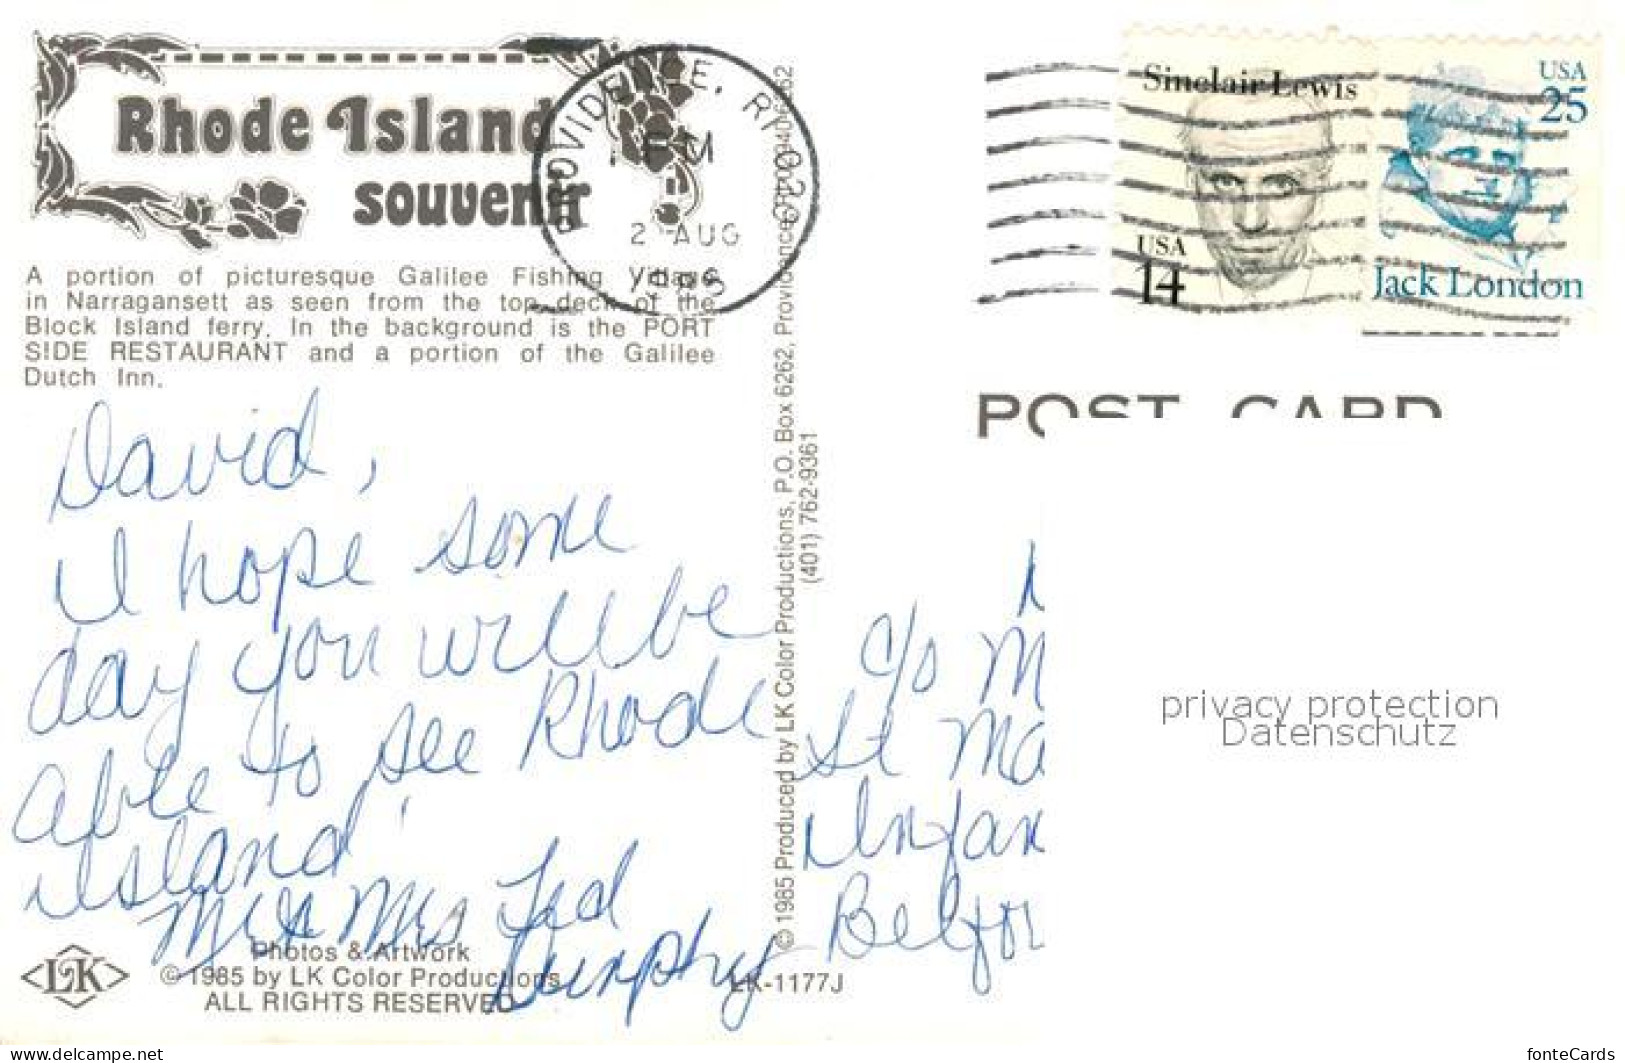 Rhode Island
souvenir
A portion of picturesque Galilee Fishing Village
in Narragansett as seen from the top deck of the
Block Island ferry. In the background is the PORT
SIDE RESTAURANT and a portion of the Galilee
Dutch Inn.
PROVIDENCE, RI 029
PM
2 AUG
Sinclair Lewis
USA
14
USA
25
Jack London
POST CARD
David,
I hope some
day you will be
able to see Rhode
Island!
Mr & Mrs Ted
Dunphy
c/o M
St Ma
Infan
Belfor
privacy protection
Datenschutz
© 1985 Produced by LK Color Productions, P.O. Box 6262, Providence
(401) 762-9361
LK
Photos & Artwork
© 1985 by LK Color Productions
ALL RIGHTS RESERVED
LK-1177J
www.delcampe.net
fonteCards